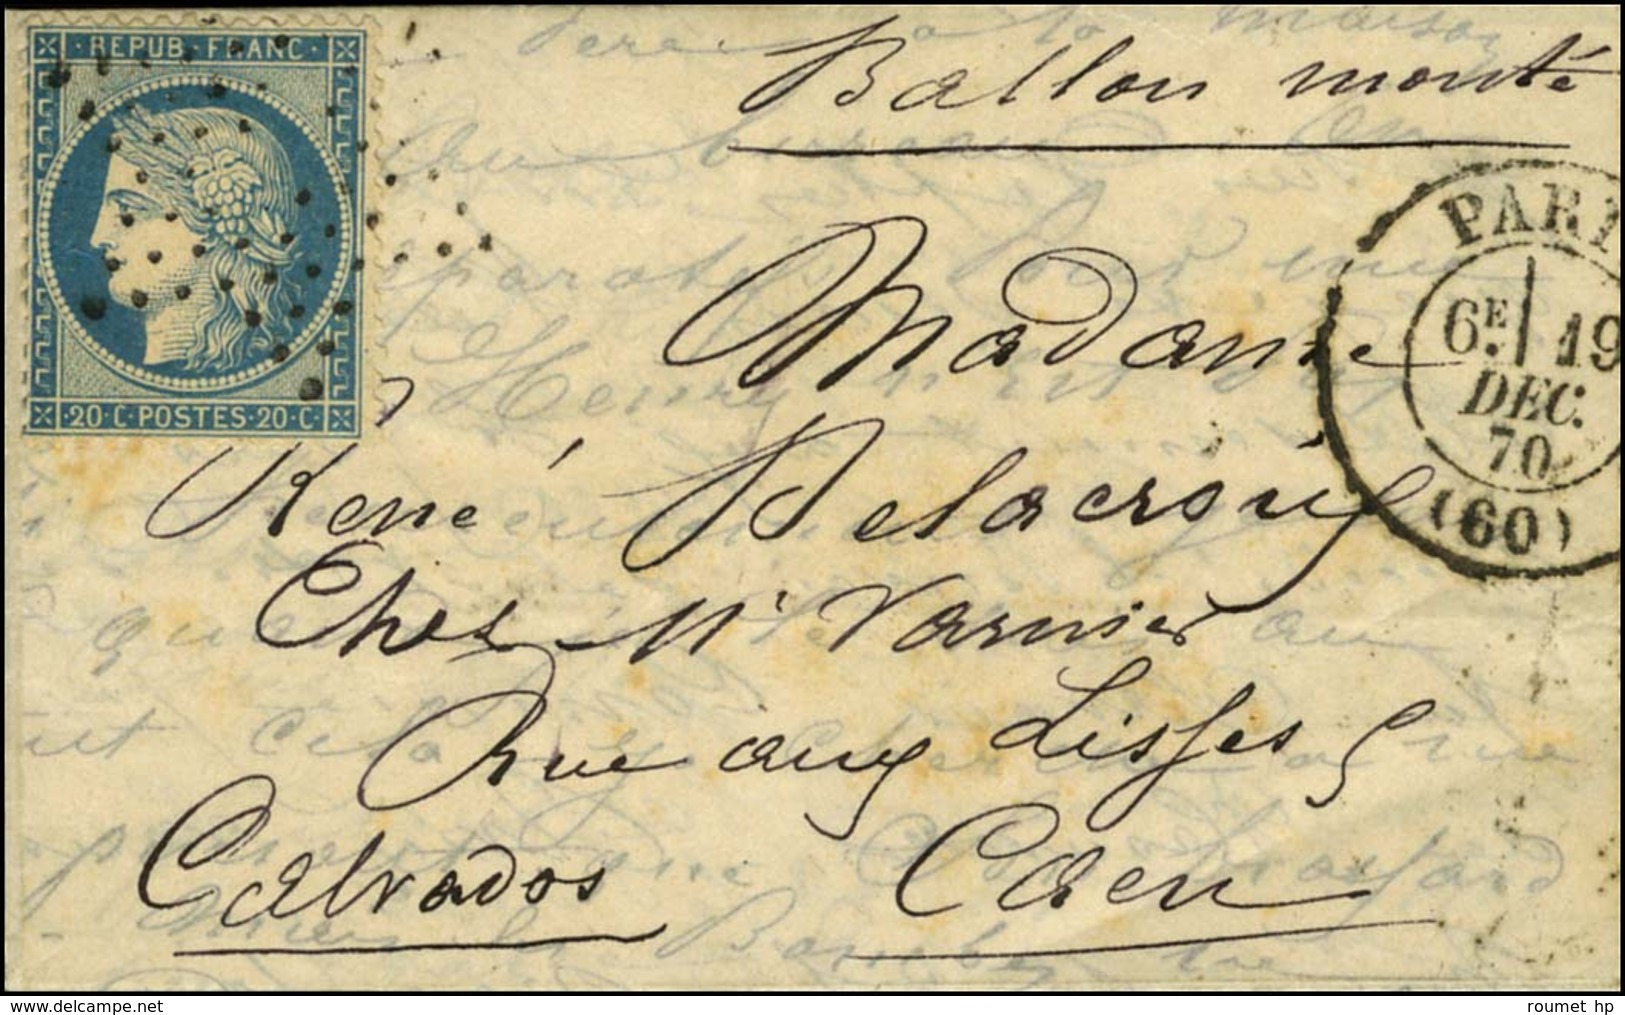 REPUB. FRANC.
20 C POSTES 20 C
Ballon monté
PARI
6E 19
DEC.
70
(60)
Madame
René Delacroix
Chez Mr Varnier
Rue aux Lisses 5
Caen
Calvados
roumet hp